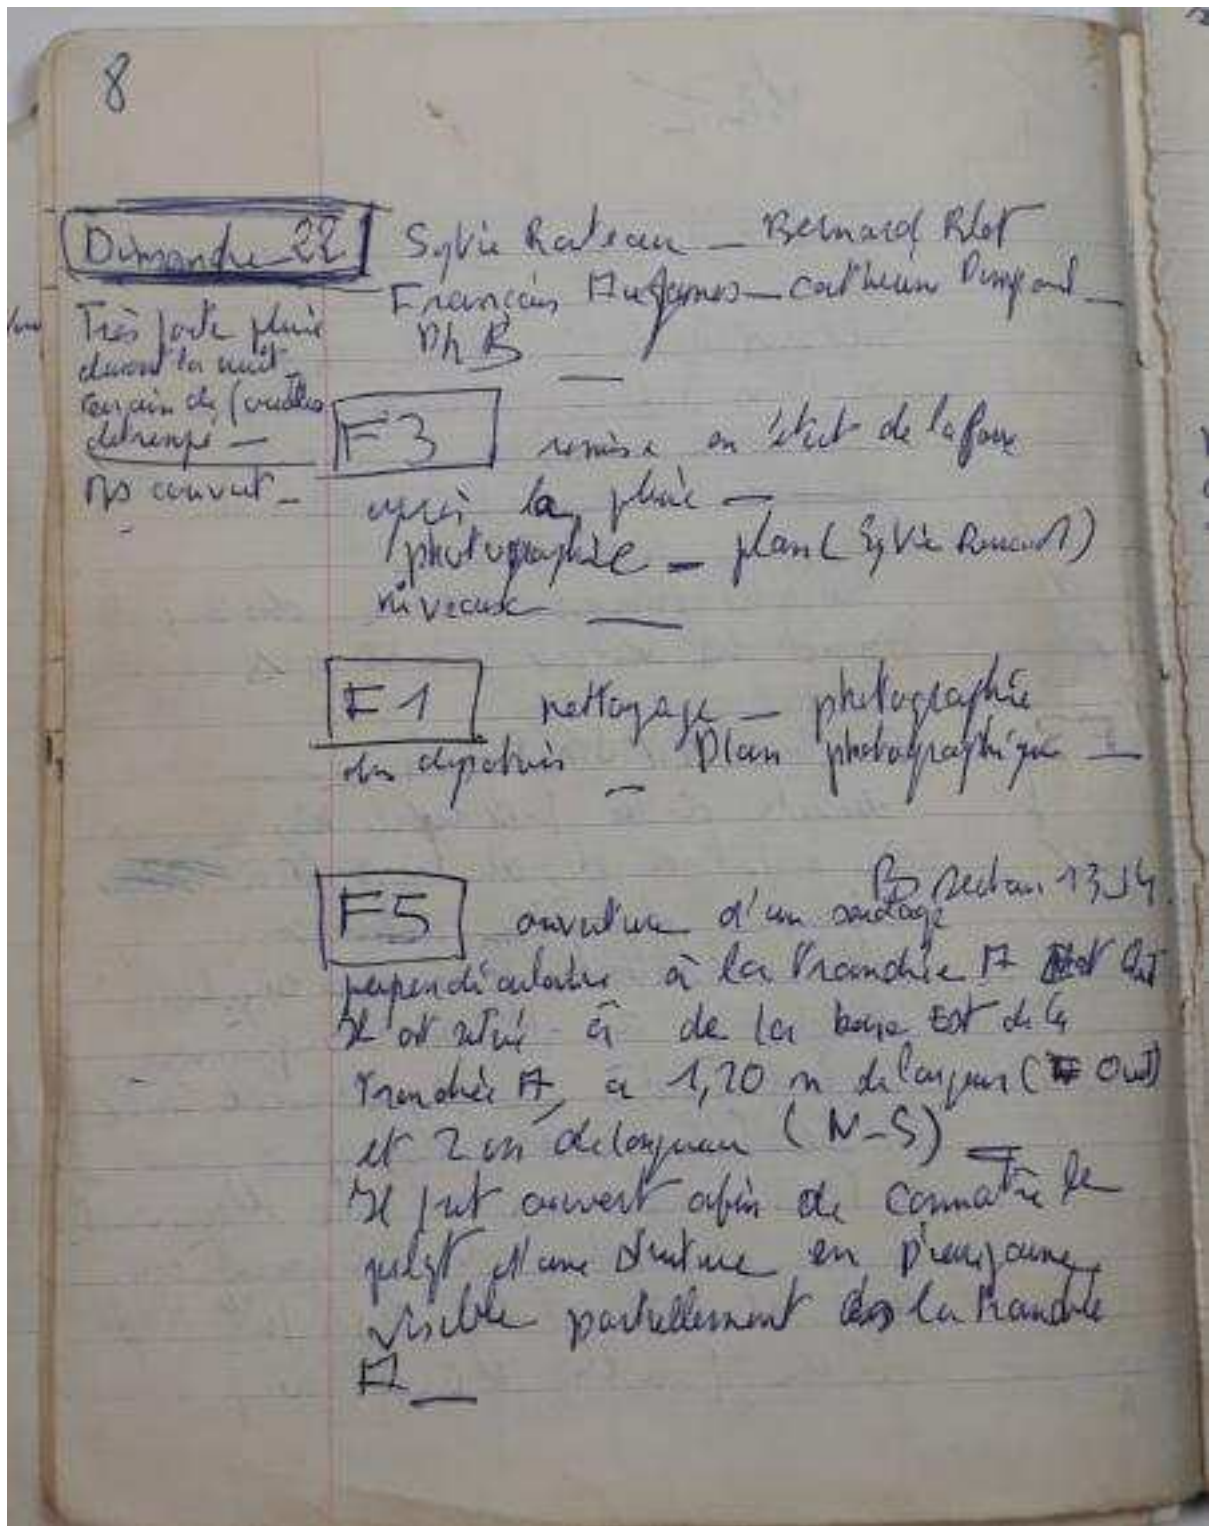 8
Dimanche 22
Très forte pluie
durant la nuit
terrain de fouilles
détrempé —
Tps couvert —
Sylvie Rateau — Bernard
François — Catherine
Ph B —
F3 remise en état de la fosse
après la pluie —
photographie — plan (Sylvie
niveaux —
F1 nettoyage — photographie
des dépotoirs — Plan photographique —
B section 13 J4
F5 ouverture d'un sondage
perpendiculaire à la tranchée A
Il est situé à de la base Est de la
tranchée A, a 1,20 m de largeur (
et 2 m de longueur (N-S) —
Il fut ouvert afin de connaître le
d'une structure en
visible partiellement ds la tranchée
A —